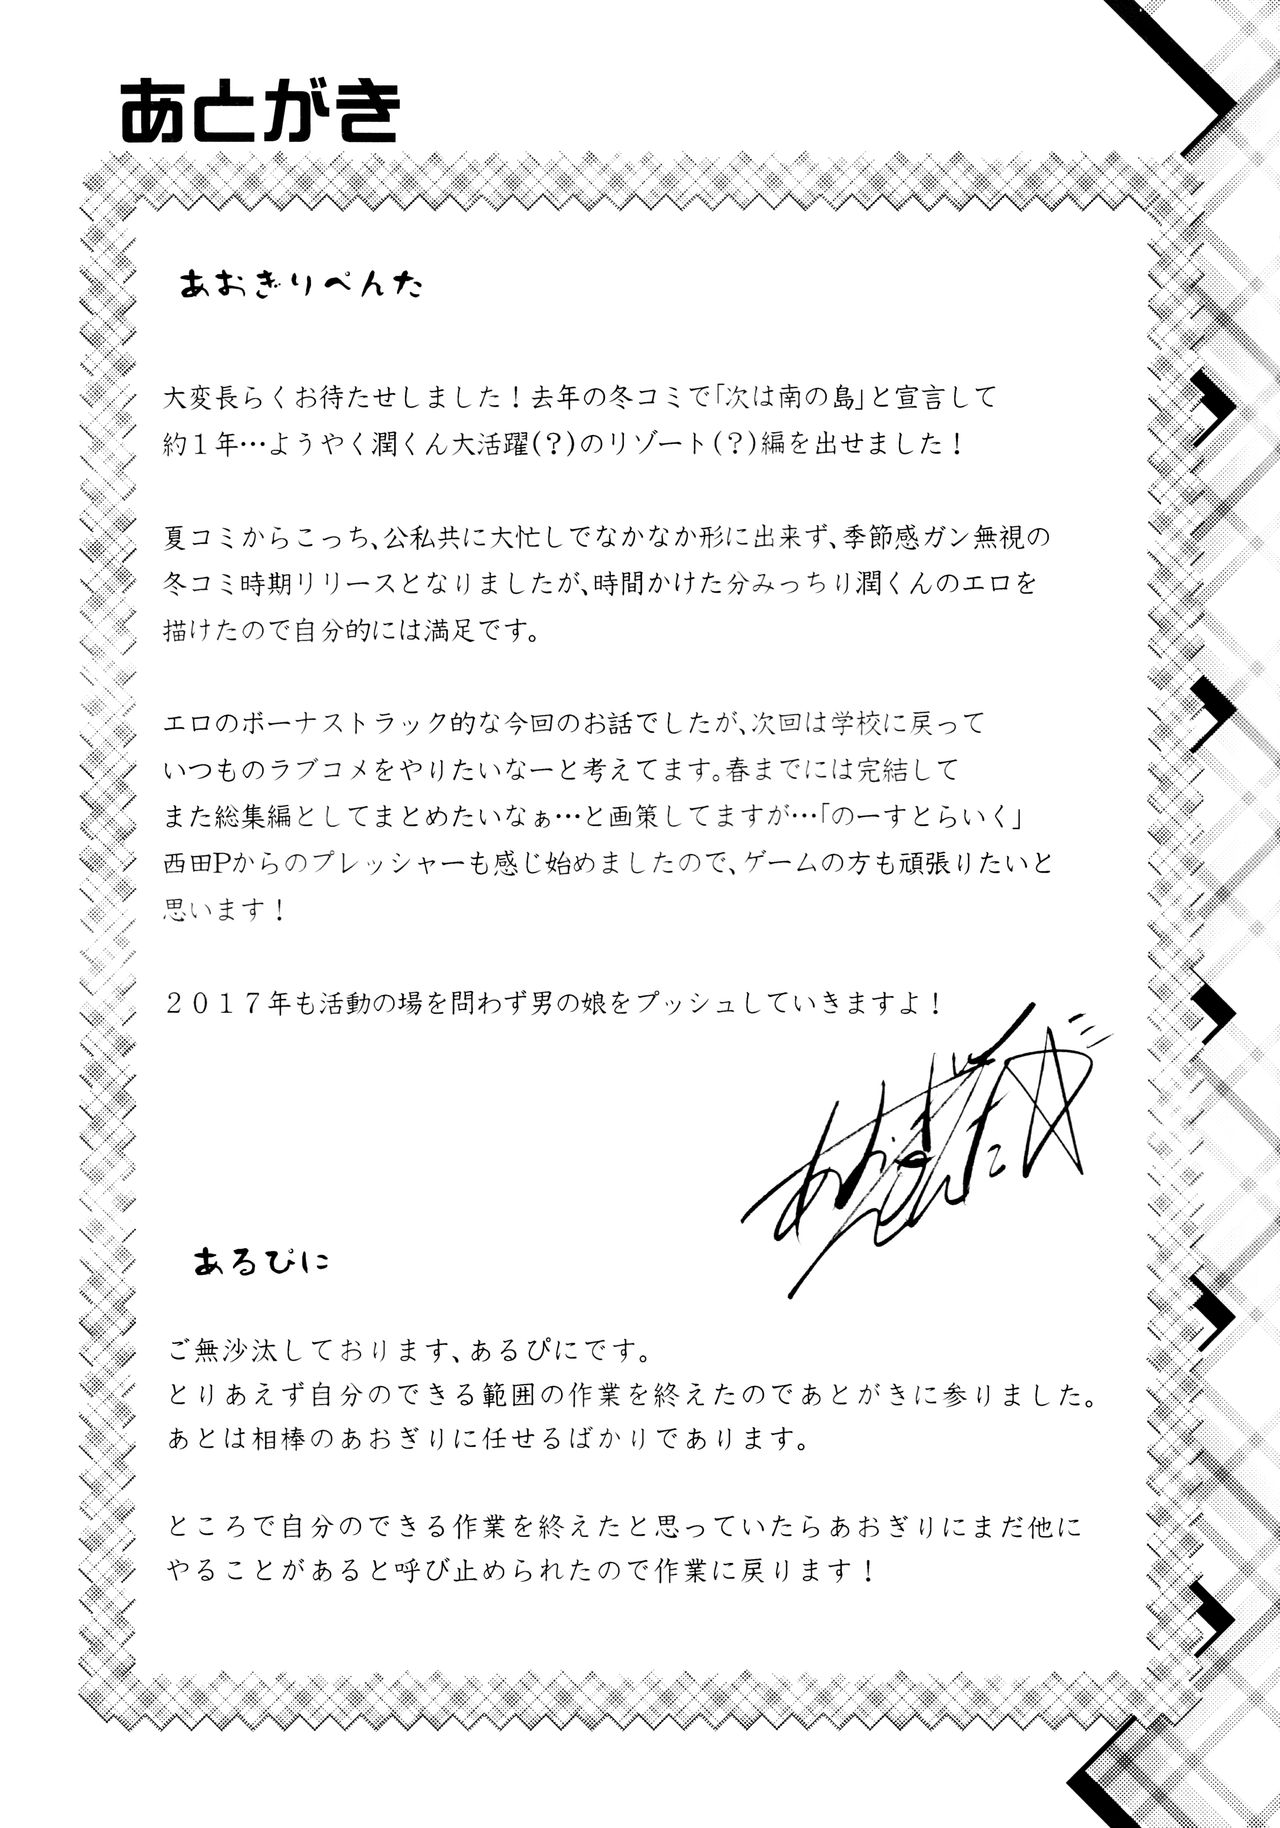 あとがき
あおぎりぺんた
大変長らくお待たせしました！去年の冬コミで「次は南の島」と宣言して
約１年…ようやく潤くん大活躍(？)のリゾート(？)編を出せました！
夏コミからこっち、公私共に大忙しでなかなか形に出来ず、季節感ガン無視の
冬コミ時期リリースとなりましたが、時間かけた分みっちり潤くんのエロを
描けたので自分的には満足です。
エロのボーナストラック的な今回のお話でしたが、次回は学校に戻って
いつものラブコメをやりたいなーと考えてます。春までには完結して
また総集編としてまとめたいなぁ…と画策してますが…「のーすとらいく」
西田Pからのプレッシャーも感じ始めましたので、ゲームの方も頑張りたいと
思います！
２０１７年も活動の場を問わず男の娘をプッシュしていきますよ！
あおぎりぺんた
あるぴに
ご無沙汰しております、あるぴにです。
とりあえず自分のできる範囲の作業を終えたのであとがきに参りました。
あとは相棒のあおぎりに任せるばかりであります。
ところで自分のできる作業を終えたと思っていたらあおぎりにまだ他に
やることがあると呼び止められたので作業に戻ります！